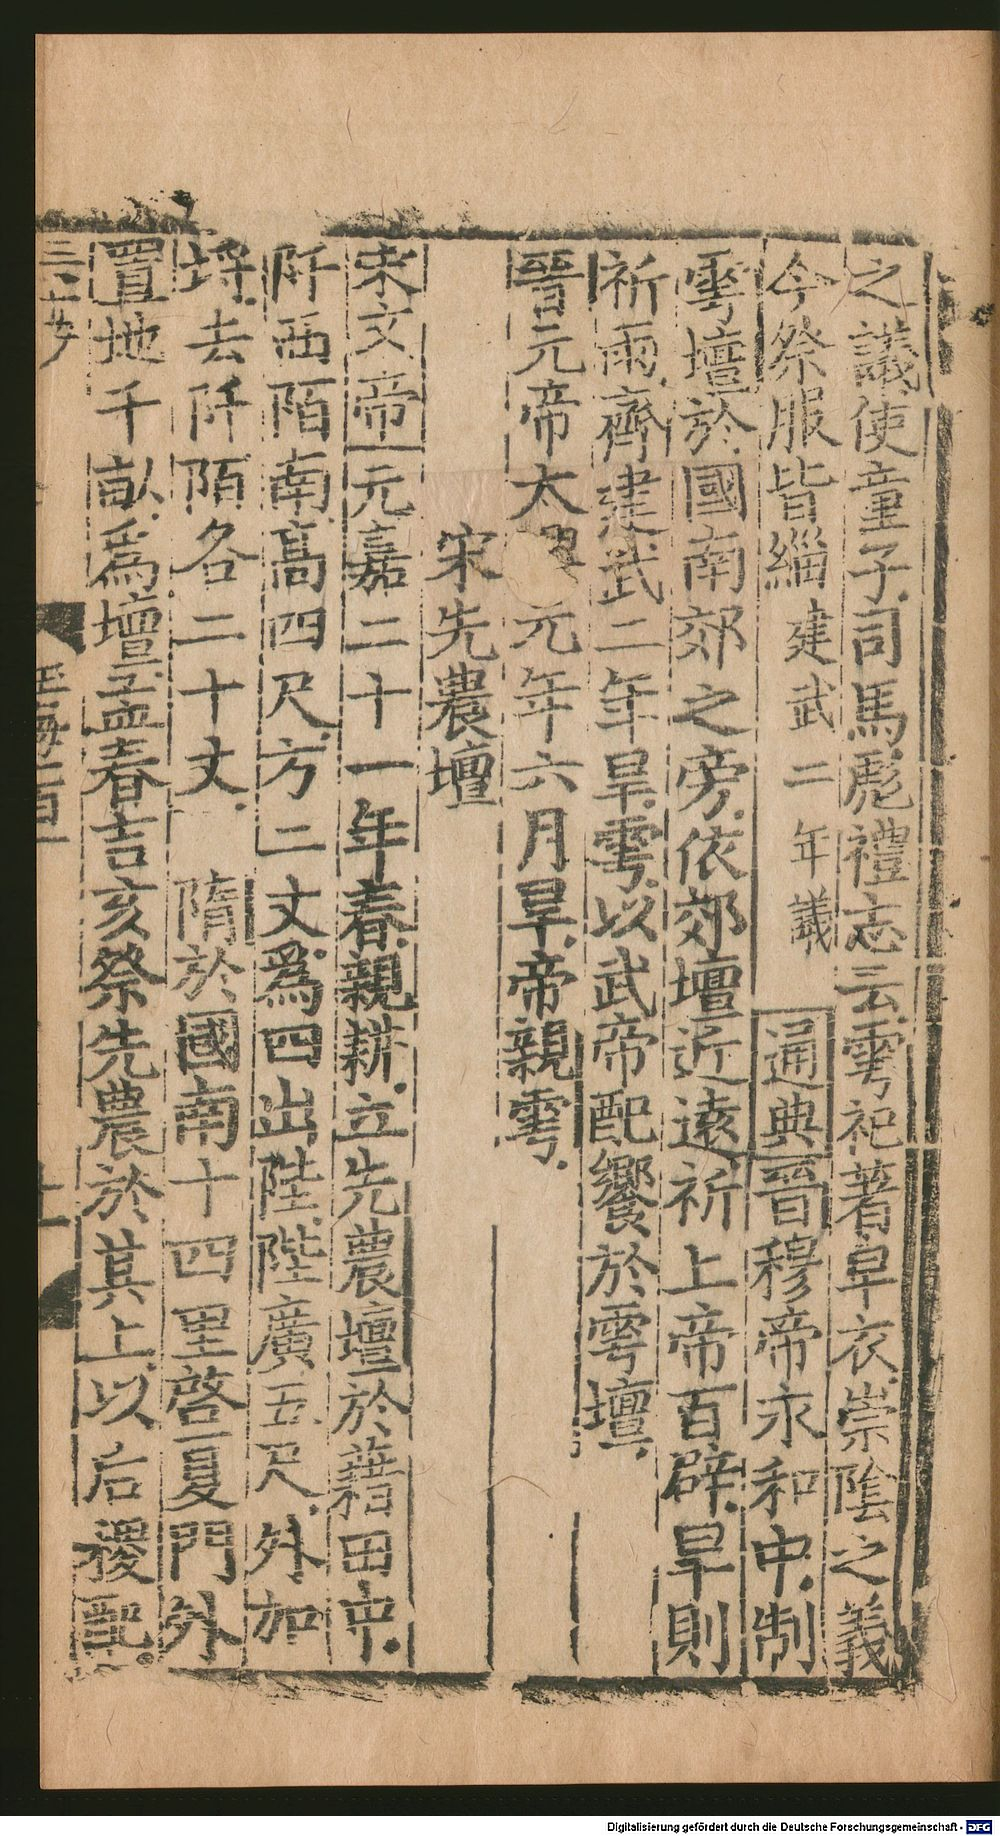 之議使童子司馬彪禮志云雩祀著皁衣崇陰之義
今祭服皆緇建武二年議通典晉穆帝永和中制
雩壇於國南郊之旁依郊壇近遠祈上帝百辟旱則
祈雨齊建武二年旱雩以武帝配饗於雩壇
晉元帝太元年六月旱帝親雩
宋先農壇
宋文帝元嘉二十一年春親耕立先農壇於藉田中
阡西陌南高四尺方二丈爲四出陛陛廣五尺外加
埒去阡陌各二十丈 隋於國南十四里啓夏門外
置地千畝爲壇孟春吉亥祭先農於其上以后稷配
玉海
Digitalisierung gefördert durch die Deutsche Forschungsgemeinschaft - DFG